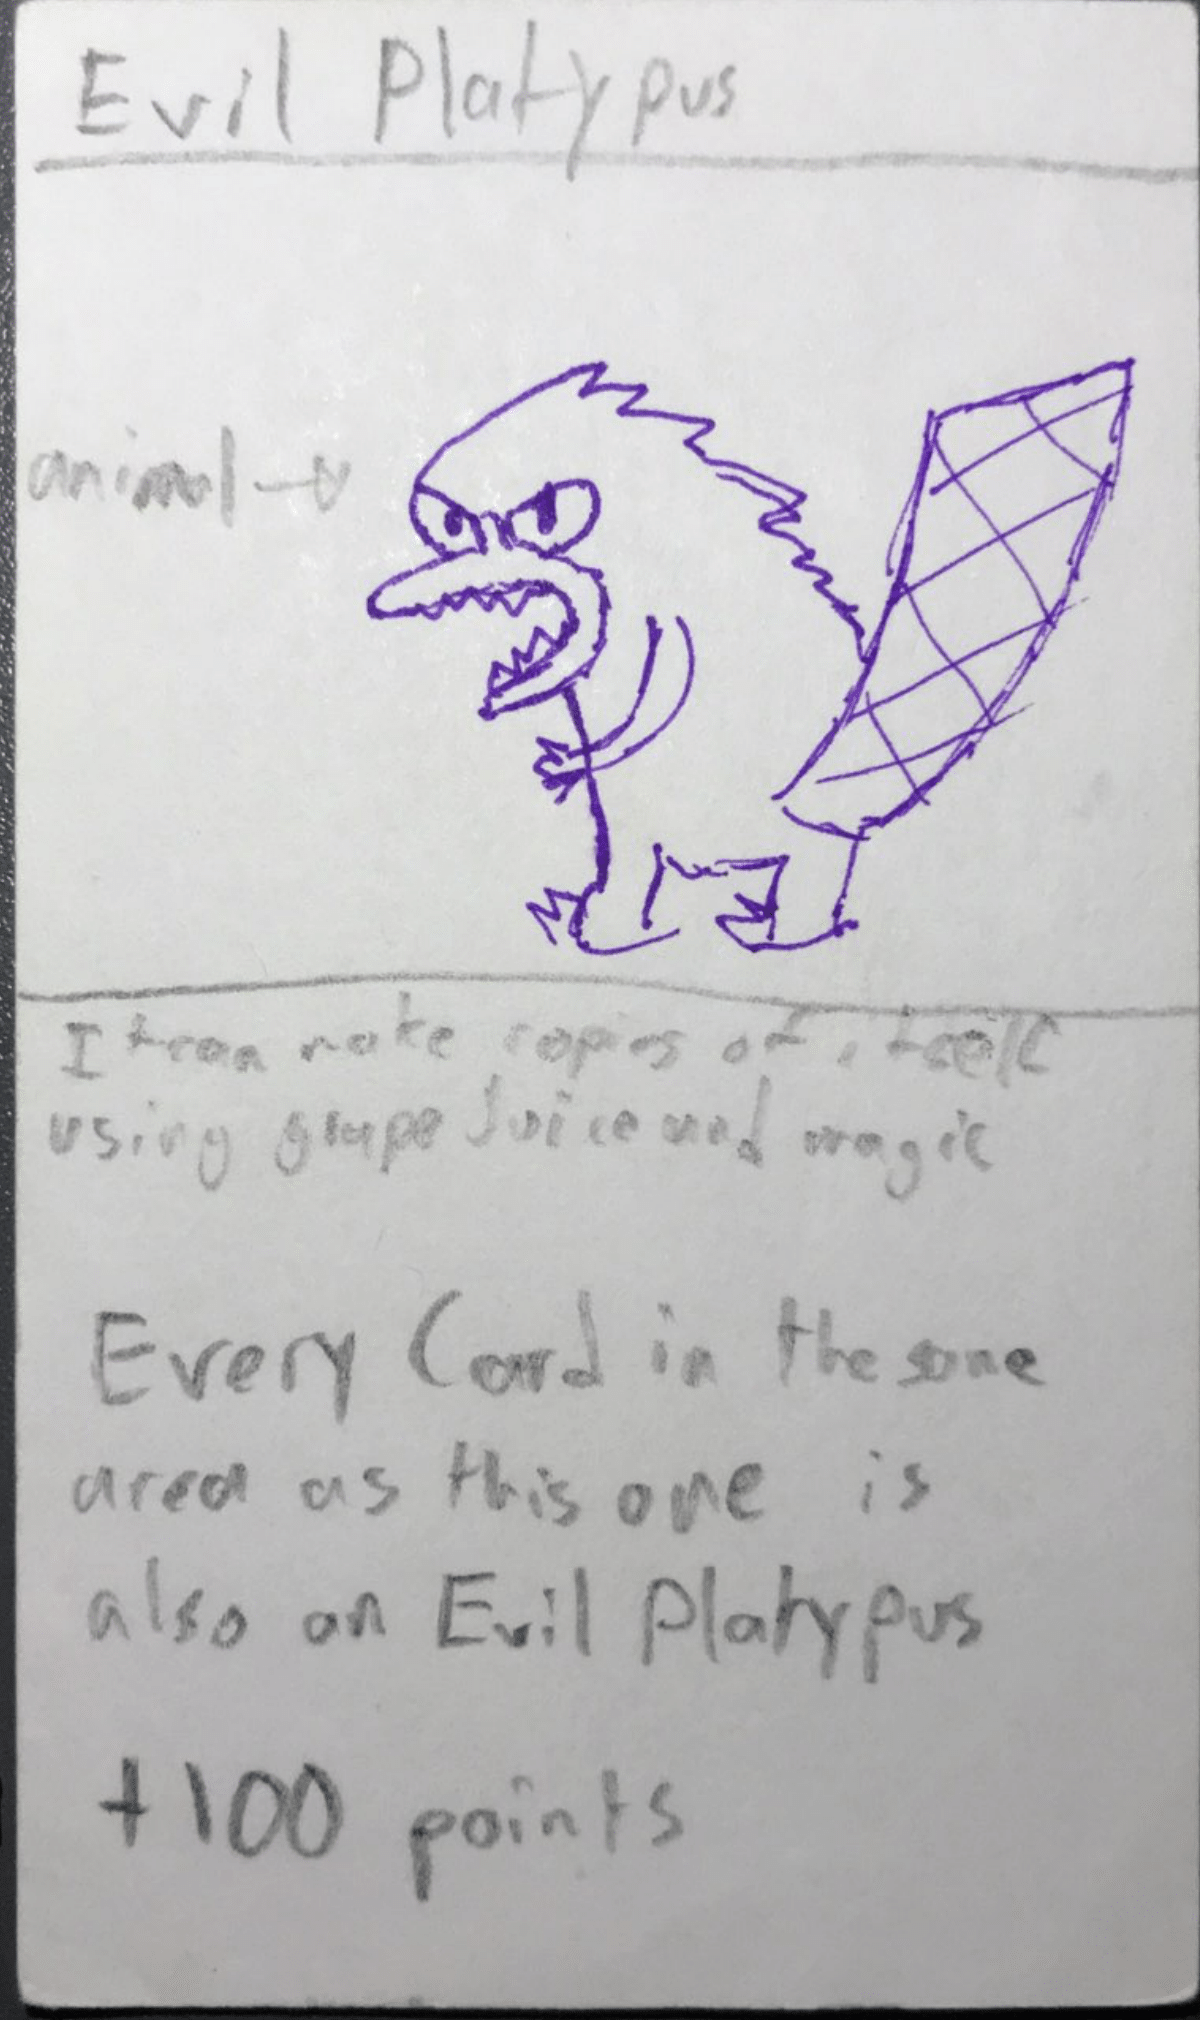 Evil Platypus
animal →
It can make copies of itself
using grape Juice and magic
Every Card in the same
area as this one is
also an Evil Platypus
+100 points